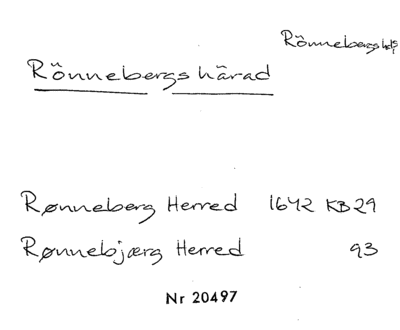 Rönnebergs hd
Rönnebergs härad
Rønneberg Herred 1642 KB 29
Rønnebjærg Herred 93
Nr 20497